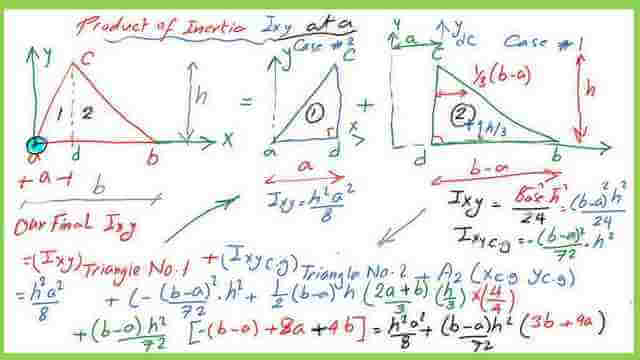 Product of Inertia Ixy at a
y
C
1
2
h
a
d
b
x
+ a +
b
=
y Case #2
C
1
x
a
d
a
Ixy = h²a²/8
+
y
a
y
dC
Case #1
C
1/3 (b-a)
h
2
h/3
d
b
b-a
Ixy = Base² h²/24 = (b-a)² h²/24
Ixy c.g = -(b-a)²/72 · h²
Our Final Ixy
= (Ixy) Triangle No.1 + (Ixy c.g) Triangle No.2 + A2 (xc.g yc.g)
= h²a²/8 + (-(b-a)²/72 · h² + 1/2 (b-a) h (2a+b)/3 (h/3) × (4/4)
+ (b-a)h²/72 [-(b-a) + 8a + 4b] = h²a²/8 + (b-a)h²/72 (3b + 9a)